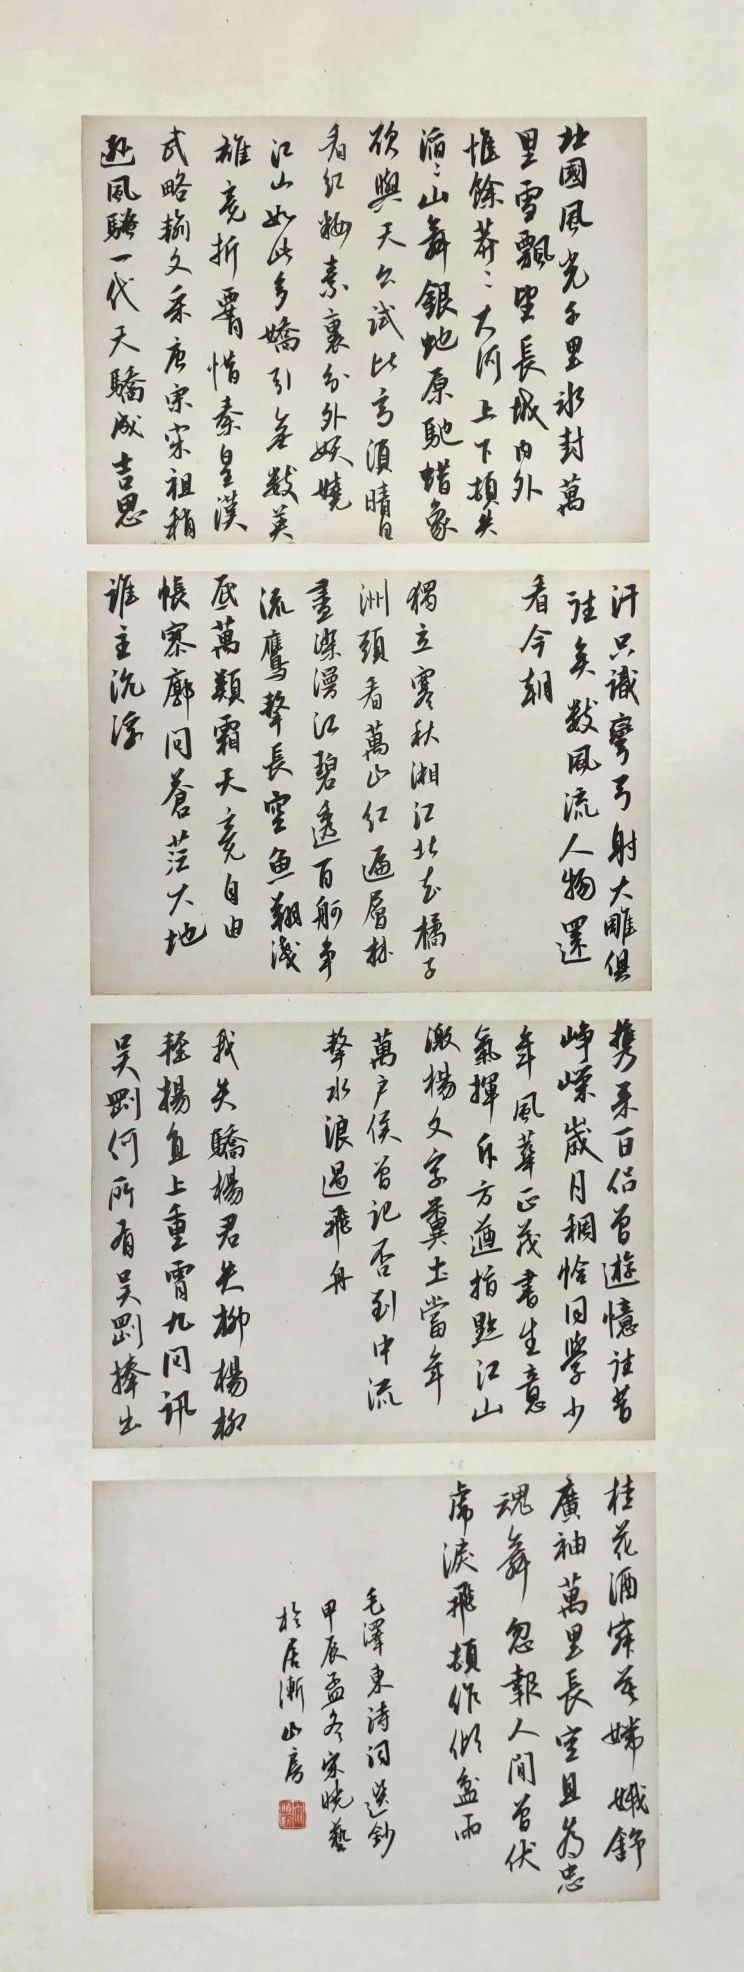 北國風光千里冰封萬
里雪飄望長城內外
惟餘莽〻大河上下頓失
滔〻山舞銀蛇原馳蜡象
欲與天公試比高須晴日
看紅妝素裹分外妖嬈
江山如此多嬌引無數英
雄競折腰惜秦皇漢
武略輸文采唐宗宋祖稍
遜風騷一代天驕成吉思
汗只識彎弓射大雕俱
往矣數風流人物還
看今朝
獨立寒秋湘江北去橘子
洲頭看萬山紅遍層林
盡染漫江碧透百舸爭
流鷹擊長空魚翔淺
底萬類霜天競自由
悵寥廓問蒼茫大地
誰主沉浮
攜來百侶曾遊憶往昔
崢嶸歲月稠恰同學少
年風華正茂書生意
氣揮斥方遒指點江山
激揚文字糞土當年
萬戶侯曾記否到中流
擊水浪遏飛舟
我失驕楊君失柳楊柳
輕揚直上重霄九問訊
吳剛何所有吳剛捧出
桂花酒寂寞嫦娥舒
廣袖萬里長空且為忠
魂舞忽報人間曾伏
虎淚飛頓作傾盆雨
毛澤東詩詞選鈔
甲辰孟冬宋曉藝
於居漸山房